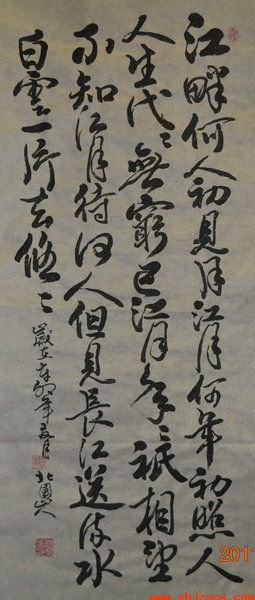 江畔何人初見月江月何年初照人
人生代〻無窮已江月年〻祇相望
不知江月待何人但見長江送流水
白雲一片去悠〻
歲在辛卯年
201